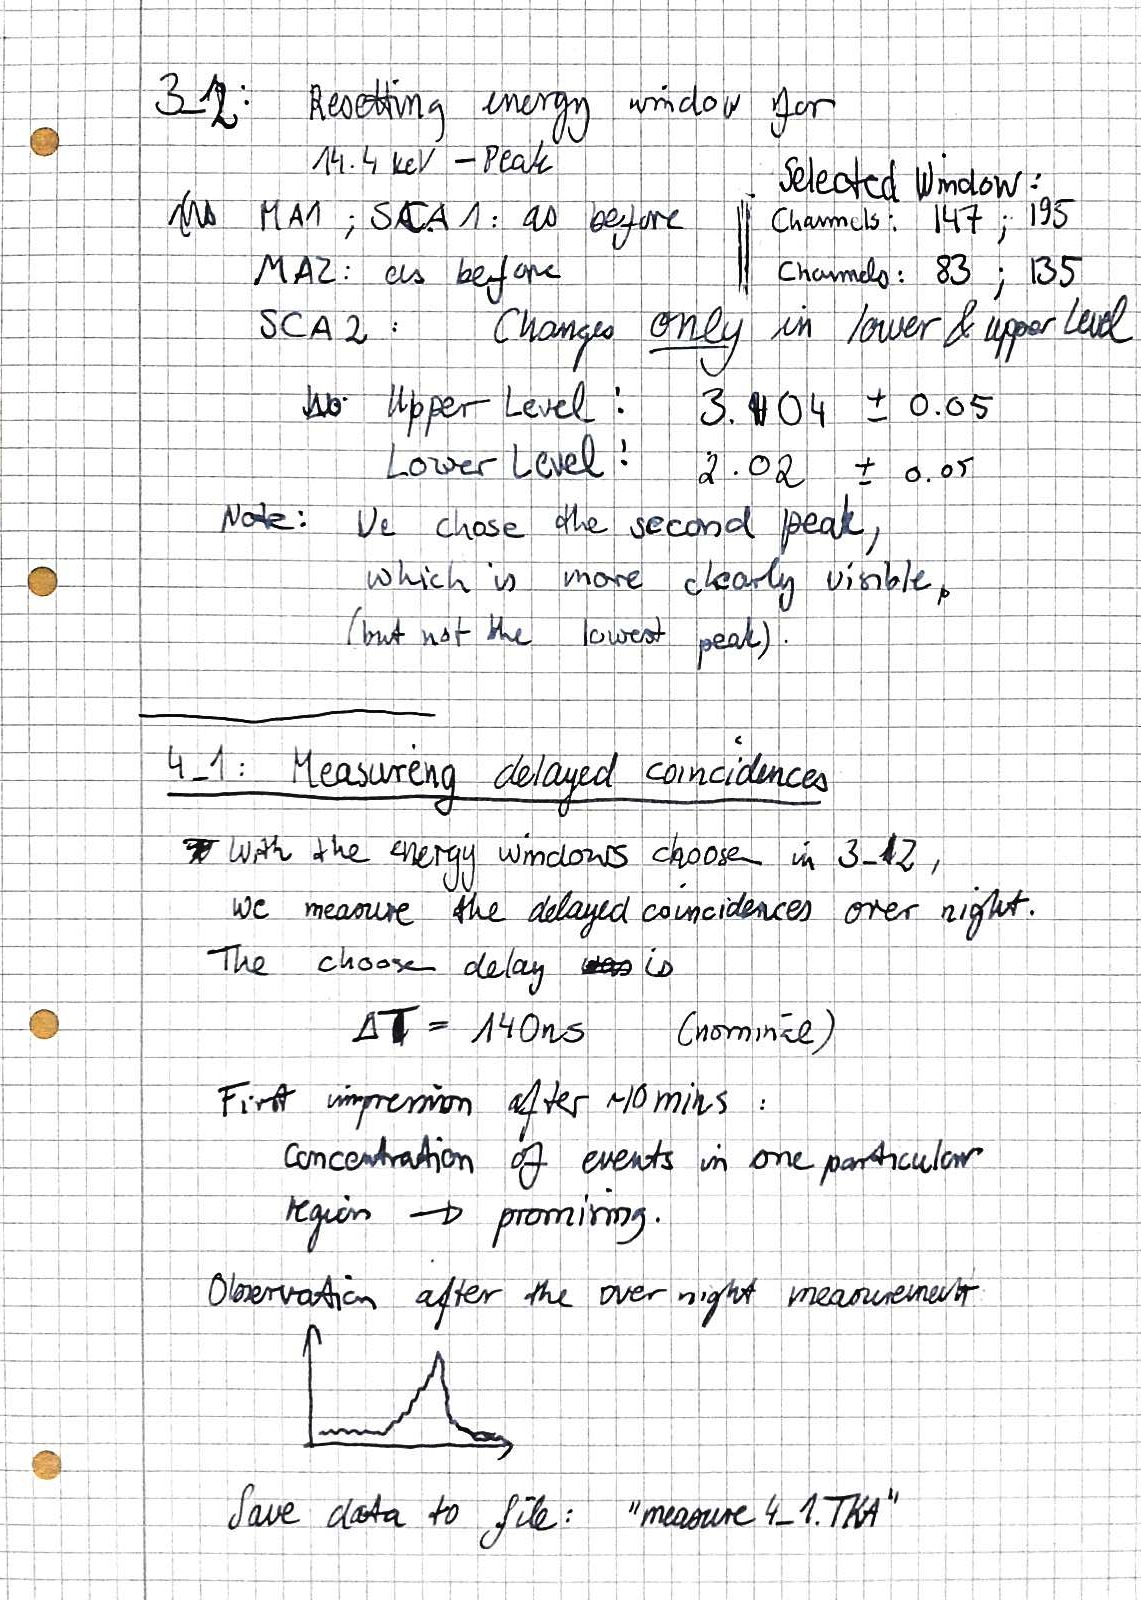 3_12: Resetting energy window for
14.4 keV - Peak
Selected Window:
MA1 ; SCA1: as before
Channels: 147 ; 195
MA2: as before
Channels: 83 ; 135
SCA2: Changes only in lower & upper Level
Upper Level: 3.04 ± 0.05
Lower Level: 2.02 ± 0.05
Note: We chose the second peak,
which is more clearly visible,
(but not the lowest peak).
4_1: Measuring delayed coincidences
With the energy windows choosen in 3_12,
we measure the delayed coincidences over night.
The choosen delay is
ΔT = 140ns (nominal)
First impression after ~10 mins:
concentration of events in one particular
region → promising.
Observation after the over night measurement
Save data to file: "measure4_1.TKA"